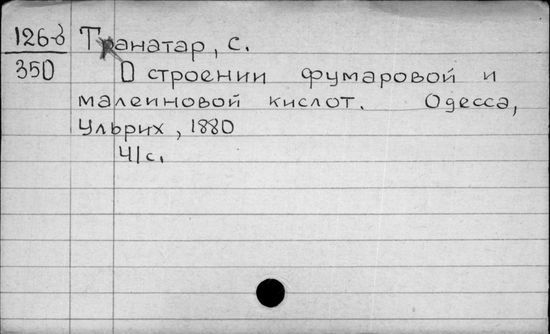 126-б Танатар, С.
350 О строении фумаровой и
малеиновой кислот. Одесса,
Ульрих, 1880
41с.